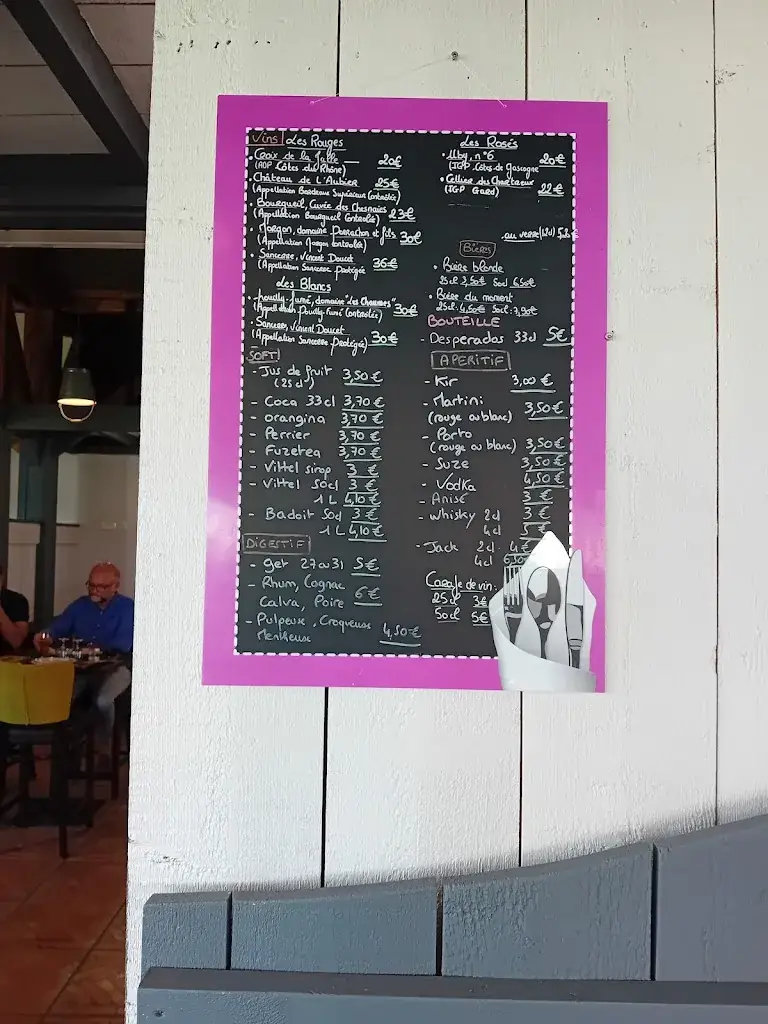 Vins Les Rouges
- Croix de la
(AOP Côtes du Rhône) 20€
- Château de L'Aubier 25€
(Appellation Bordeaux Supérieur Contrôlée)
- Bourgueil, Cuvée des Chesnaies
(Appellation Bourgueil Contrôlée) 23€
- Morgon, domaine et fils
(Appellation Morgon contrôlée) 30€
- Sancerre, Vincent Doucet
(Appellation Sancerre Protégée) 36€
Les Blancs
- Pouilly-fumé, domaine "Les Chaumes"
(Appellation Pouilly Fumé Contrôlée) 30€
- Sancerre, Vincent Doucet
(Appellation Sancerre Protégée) 30€
SOFT
- Jus de fruit 3,50€
(25cl)
- Coca 33cl 3,70€
- Orangina 3,70€
- Perrier 3,70€
- Fuzetea 3,70€
- Vittel sirop 3€
- Vittel 50cl 3€
1L 4,10€
- Badoit 50cl 3€
1L 4,10€
DIGESTIF
- get 27 ou 31 5€
- Rhum, Cognac
Calva, Poire 6€
- Pulpeuse, Croqueuse
Menteuse 4,50€
Les Rosés
- Uby, n°6 20€
(IGP Côtes de Gascogne
- Cellier des Chartreux 22€
(IGP Gard)
au verre
Bières
- Bière blonde
25cl 3,50€ 50cl 6,50€
- Bière du moment
25cl: 4,50€ 50cl: 7,90€
BOUTEILLE
- Desperados 33cl 5€
APERITIF
- Kir 3,00€
- Martini
(rouge ou blanc) 3,50€
- Porto
(rouge ou blanc) 3,50€
- Suze 3,50€
- Vodka 4,50€
- Anisé 3€
- Whisky 2cl 3€
4cl 5€
- Jack 2cl 4€
4cl 6,50
Carafe de vin:
25cl 3€
50cl 5€